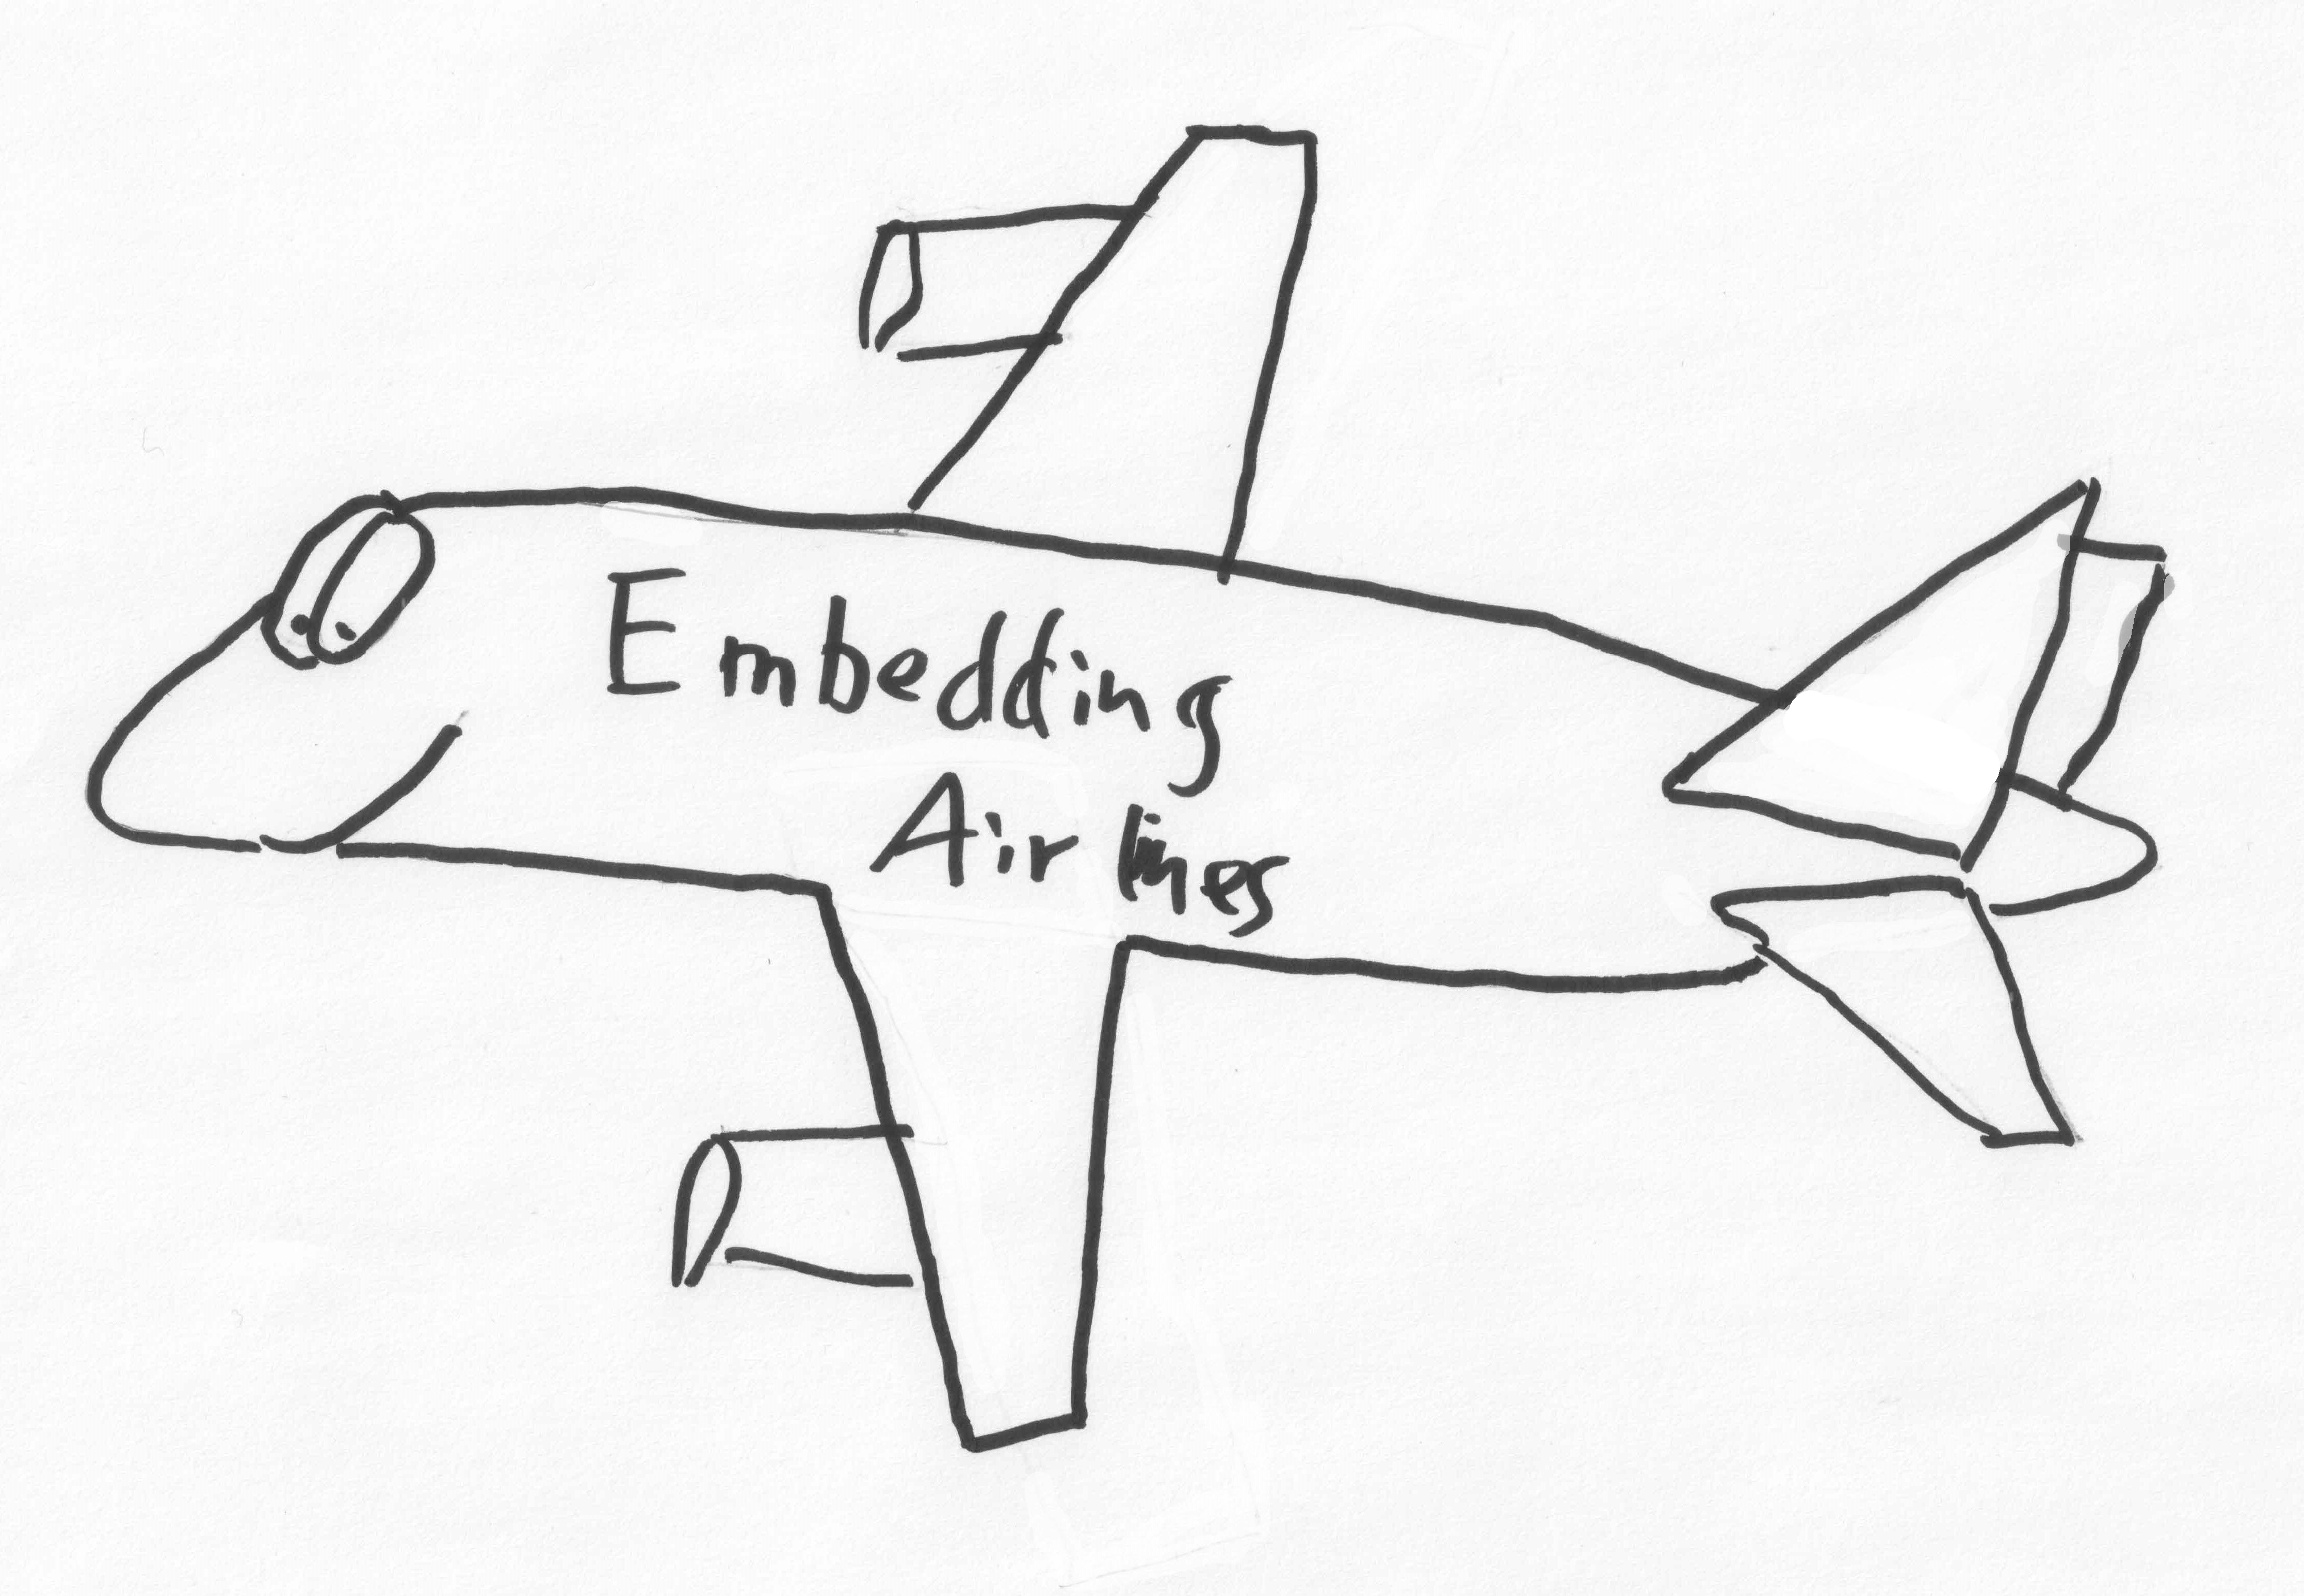 Embedding
Airlines